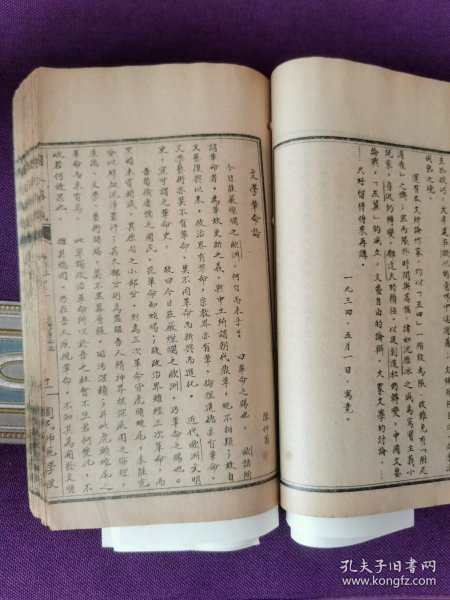 成熟之境。
還有本文所論作家，均以「五四」一階段為限，故難免有「別足
適履」之譏；然而限於時間與篇幅，諸如沉冰之成為寫實主義小
說家，魯迅的轉變，郁達夫的頹唐，以及創造社的轉變，中國文藝
論戰，「左翼」的成立，文藝自由的論辯，大眾文學的討論，…
…只好留待將來再講。
一九三四，五月一日，寓竟。
文學革命論
陳仲甫
今日莊嚴燦爛之歐洲，何自而來乎？　曰革命之賜也。　歐語所
謂革命者，為革故更新之義，與中土所謂朝代鼎革，絶不相類；故自
文藝復興以來，政治界有革命，宗教界亦有革，倫理道德亦有革命，
文學藝術亦莫不有革命，莫不因革命而新興而進化。　近代歐洲文明
史，宜可謂之革命史。　故曰今日莊嚴燦爛之歐洲，乃革命之賜也。
吾苟偷庸懦之國民，畏革命如蛇蝎；故政治界雖經三次革命，而
黑暗未嘗稍減。其原因之小部分則為三次革命皆虎頭蛇尾，未能充
分以鮮血洗淨舊汙；其大部分，則為盤踞吾人精神界根深底固之倫理，
道德，文學，藝術諸端，莫不黑幕層張，垢汙深積；并此虎頭蛇尾之
革命而未有焉。　此單獨政治革命所以於吾之社會不生若何變化，不
收若何效果也。　推其總因，乃在吾人疾視革命，不知其為開發文明
師範學校
孔夫子旧书网
www.kongfz.com